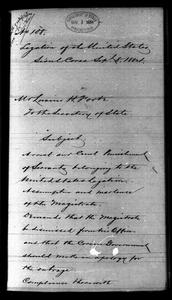 No 108.
Legation of the United States
Seoul Corea Sept 3, 1884.
Mr Lucius H. Foote
To the Secretary of State
Subject
Arrest and Cruel Punishment
of Servants belonging to the
United States Legation.
Assumption and insolence
of the Magistrate.
Demands that the Magistrate
be dismissed from his Office
and that the Corean Government
should make an apology for
the outrage.
Compliance therewith